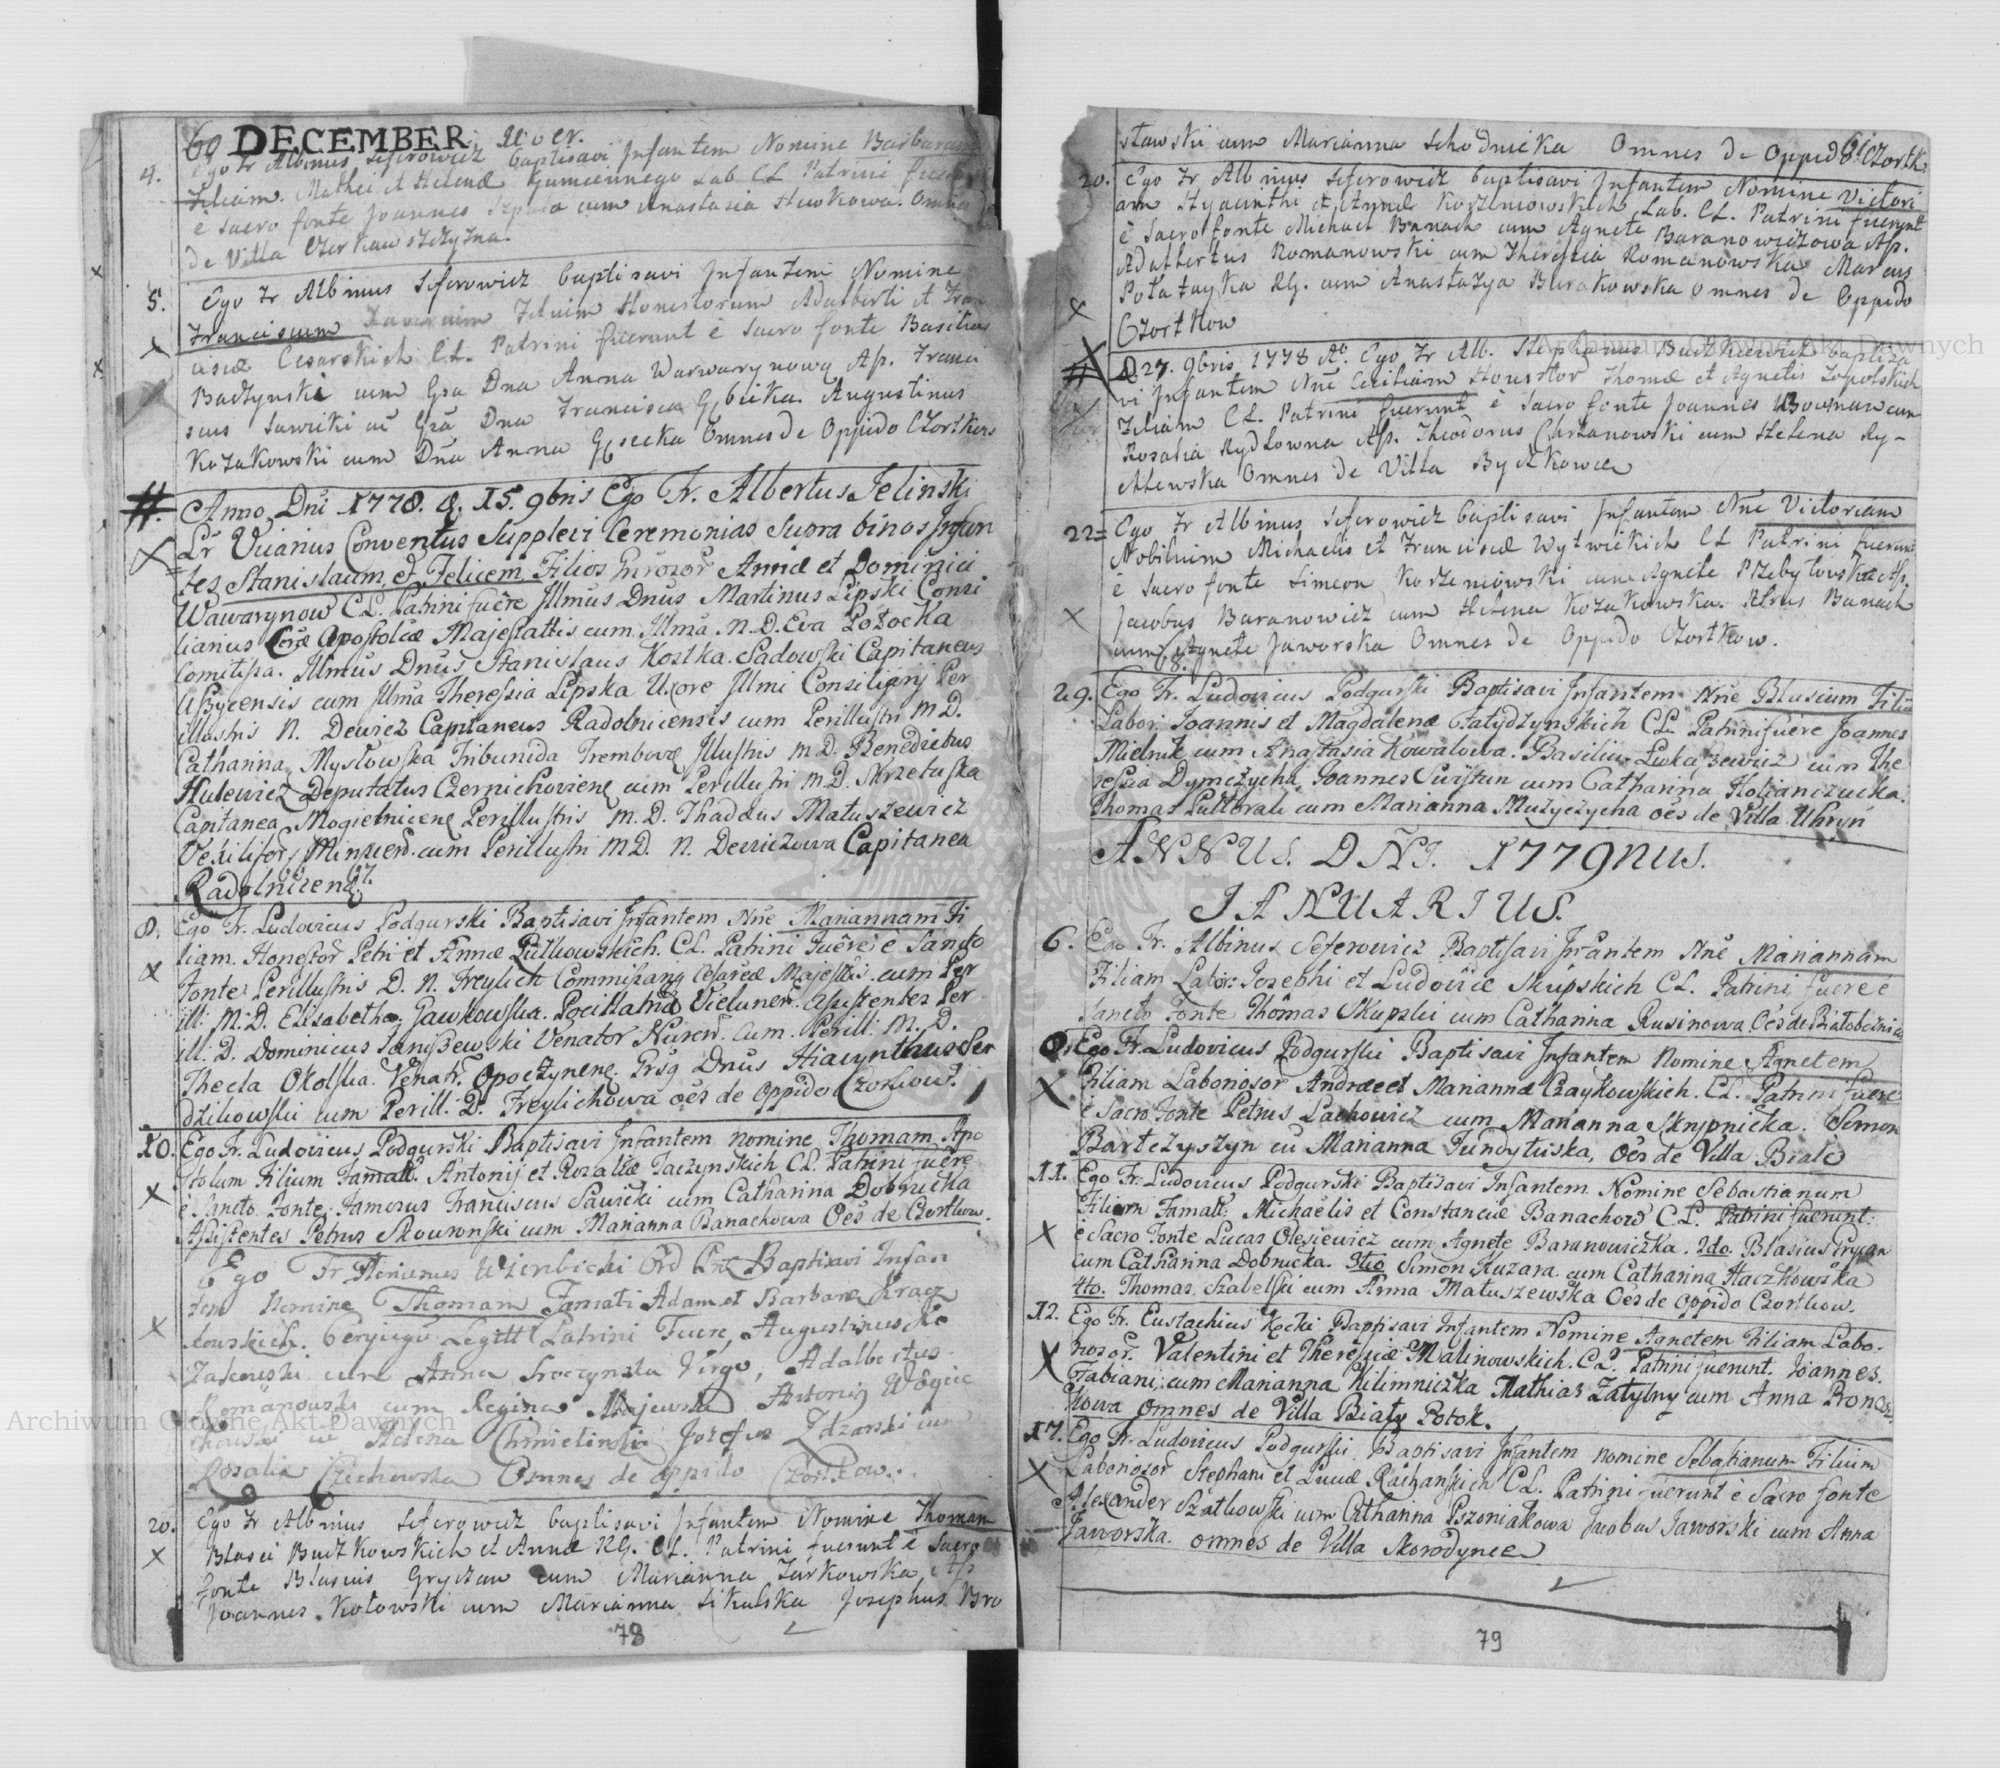 60 DECEMBER
4. Ego Fr Albinus Seferowicz baptisavi Infantem Nomine Barbaram
Filiam Mathei et Helenæ Gumiennego Lab CL Patrini fuerunt
è Sacro fonte Joannes cum Anastasia Omnes
de Villa
5. Ego Fr Albinus Seferowicz baptisavi Infantem Nomine
Franciscum Xaverium Filium Honestorum Adalberti et Fran
ciscæ Cesarskich CL. Patrini fuerunt è Sacro fonte Basilius
Baczynski cum Gsa Dna Anna Warwarynowa Ass. Franci
scus Sawicki cū Gsa Dna Francisca Augustinus
Kozakowski cum Dna Anna Omnes de Oppido Czortkow
#. Anno Dni 1778. d. 15. 9bris Ego Fr. Albertus Jelinski
Vicarius Conventus Supplevi Ceremonias Supra binos Infan
tes Stanislaum et Felicem Filios Annæ et Dominici
Wawarynow CL. Patrini fuêre Illmus Dnus Martinus Lipski Consi
liarius Apostolcæ Majestattis cum Illma M. D. Eva Potocka
Comitissa. Illmus Dnus Stanislaus Kostka Sadowski Capitaneus
cum Illma Theressia Lipska Uxore Illmi Consiliarij Per
illustris N. Dewicz Capitaneus Radolnicensis cum Perillustri M D.
Catharina Mysłowska Tribunida Trembowæ Illustris M. D. Benedictus
Hulewicz Deputatus Czernichoviene cum Perillustri M. D. Skrzetuska
Capitanea Mogielnicene Perillustris M. D. Thaddeus Matuszewicz
Vexilifer cum Perillustri M D. N. Dewiczowa Capitanea
Radolnicene
8. Ego Fr. Ludovicus Podgurski Baptisavi Infantem Nne Mariannam Fi
liam. Honestor Petri et Annæ Pulkowskich. CL. Patrini Fuêre è Sancto
Fonte Perillustris D. N. Freylich Cesareæ Majestis cum Per
ill: M: D. Elisabetha Gawkowska Pocillatrid Vielunen. Assistentes Per
ill: D. Dominicus Janiszewski Venator cum Perill: M. D.
Thecla Okolska Venatr. Opoczynene. Dnus Hiacynthus Ser
dzikowski cum Perill: D. Freylichowa oēs de oppido Czortkow.
10. Ego Fr. Ludovicus Podgurski Baptisavi Infantem nomine Thomam Apo
stolum Filium Famatt. Antonij et Rozaliæ Jaczynskich CL. Patrini fuêre
è Sancto Fonte Famosus Franciscus Sawicki cum Catharina Dobnicka
Assistentes Petrus Skowronski cum Marianna Banachowa Oēs de Czortkow.
Ego Fr Wierzbicki Ord Baptisavi Infan
tem Nomine Thomam Famati Adam et Barbara
kowskich. Conjugū Legitt Patrini Fuere, Augustinus Ko
zakowski cum Anna Virgo, Adalbertus
Romanowski cum Regina Majewska Antonius
cū Helena Chmielinska Josefus cum
Rosalia Czechowska Omnes de oppido Czortkow.
20. Ego Fr Albinus Seferowicz baptisavi Infantem Nomine Thomam
Blasei Budzkowskich et Annæ Rg. CL. Patrini fuerunt è Sacro
fonte Blasius Gryczan cum Marianna Zurkowska Ass
Joannes Kotowski cum Marianna Sikulska Josephus Bro
78
61
sławski cum Marianna Schodnicka Omnes de Oppido Czortk.
20. Ego Fr Albinus Seferowicz baptisavi Infantem Nomine Victori
am Hyacinthi et Annæ Korzeniowskich Lab. CL. Patrini fuerunt
è Sacro fonte Michael Banach cum Agnete Baranowiczowa Ass.
Adalbertus Romanowski cum Theressia Romanowska Marcus
Potatayka Rg. cum Anastazya Burakowska Omnes de Oppido
Czortkow
# D 27. 9bris 1778 Ao. Ego Fr Alb. Stephanus Budzkiewicz baptiza
vi Infantem Nne Ceciliam Honestor Thomæ et Agnetis Zopolskich
Filiam CL. Patrini fuerunt è Sacro fonte Joannes cum
Rosalia Rydlowna Ass. Theodorus Chrzanowski cum Helena Ry-
Omnes de Villa Byczkowce
22= Ego Fr Albinus Seferowicz baptisavi Infantem Nne Victoriam
Nobilium Michaelis et Franciscæ Wytwickich CL Patrini fuerunt
è Sacro fonte Simeon Korzeniowski cum Agnete Przebylowska Ass.
Jacobus Baranowicz cum Helena Kozakowska. Petrus Banach
cum Agnete Jaworska Omnes de Oppido Czortkow.
29. Ego Fr. Ludovicus Podgurski Baptisavi Infantem Nne Blasium Filiu
Labor: Joannis et Magdalenæ Patrini fuere Joannes
Mielnik cum Anastasia Kowalowa. Basilius cum The
ressia Dymczycha, Joannes cum Catharina
Thomas cum Marianna Muzyczycha oēs de Villa Uhryn
ANNUS. DNI. 1779NUS.
JANUARIUS.
6. Ego Fr. Albinus Seferowicz Baptisavi Infantem Nnē Mariannam
Filiam Labor: Josephi et Ludovicæ Skupskich CL. Patrini fuere è
Sancto Fonte Thomas Skupski cum Catharina Rusinowa Oēs de
8. Ego Fr. Ludovicus Podgurski Baptisavi Infantem Nomine Agnetem
Filiam Laboriosor Andreæ et Mariannæ Czaykowskich. CL. Patrini fuere
è Sacro Fonte Petrus Lachowicz cum Marianna Skrypnicka. Simon
Bartczyszyn cū Marianna Oēs de Villa Biale
11. Ego Fr. Ludovicus Podgurski Baptisavi Infantem Nomine Sebastianum
Filium Famatt: Michaëlis et Constanciæ Banachow CL. Patrini fuerunt:
è Sacro Fonte Lucas Olesiewicz cum Agnete Baranowiczka. 2do. Blasius Grycan
cum Catharina Dobnicka. 3tio Simon Kuzara cum Catharina Haczkowska
4to. Thomas Szabelski cum Anna Matuszewska Oēs de oppido Czortkow.
12. Ego Fr. Eustachius Baptisavi Infantem Nomine Agnetem Filiam Labo-
riosor. Valentini et Theressiæ Malinowskich. CL. Patrini fuerunt. Joannes
Fabiani cum Marianna Kilimniczka Mathias Zatylny cum Anna
kowa omnes de Villa Biały Potok.
17. Ego Fr. Ludovicus Podgurski Baptisavi Infantem nomine Sebastianum Filium
Laboriosor Stephani et Luciæ CL. Patrini fuerunt è Sacro fonte
Alexander Szatkowski cum Catharina Pszoniakowa Jacobus Jaworski cum Anna
Jaworska. omnes de Villa Skorodynce
79
Archiwum Główne Akt Dawnych
Archiwum Główne Akt Dawnych